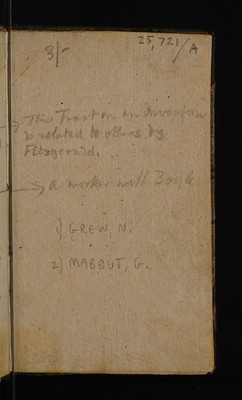 3/-
25,721/A
This Tract on an Invention
is related to others by
Fitzgerard.
a worker with Boyle
1) GREW, N.
2) MABBUT, G.